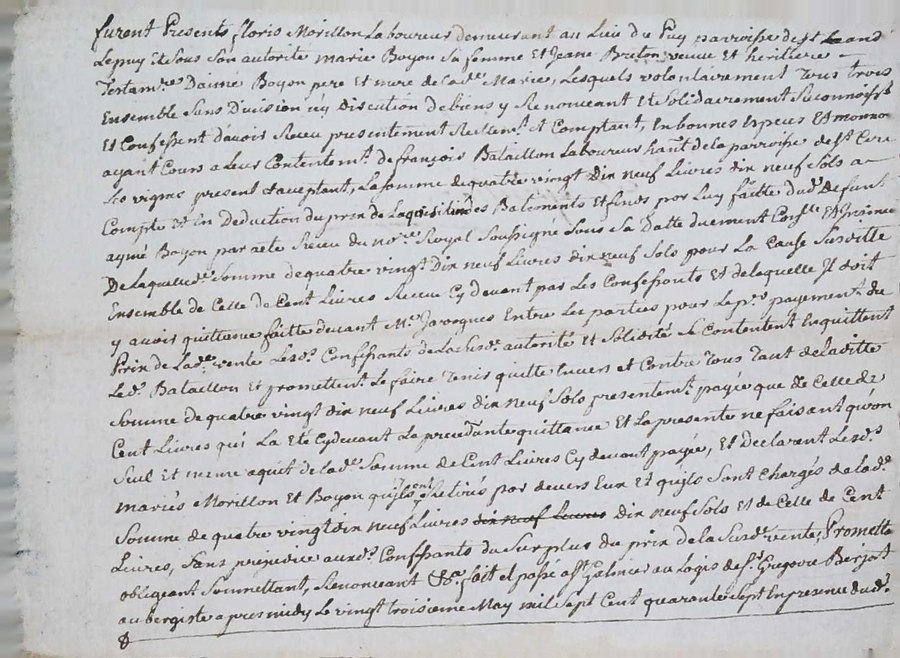 furent Presents floris Morillon Laboureur demeurant au Lieu du Puy parroisse de St
Lepuy et Sous Son autorité marie Boyon sa femme Et Jeane Breton veuve et héritiere
Testamre Daimé Boyon pere et mere de lade Marie, Lesquels volontairement Tous trois
Ensemble Sans Division n'y Discution de biens y Renonceant et Solidairement Reconnoisst
Et Confessent davoir Receu presentement Reelemt et Comptant, En bonnes Especes et monno
ayant Cours a Leur Contentemt de françois Bataillon Laboureur hant de la parroisse de St
present et aceptant, La somme de quatre vingt Dix neuf Livres dix neuf Sols a
Compte et En Deduction du prix de Laquisition des Batements et fonds par Luy faitte dud. defunt
aymé Boyon par acte Receu du nore Royal Soussigné Sous Sa Datte duement
De Laquelle Somme de quatre vingt Dix neuf Livres dix neuf Sols pour La Cause Susditte
Ensemble de Celle de Cent Livres Receu Cy devant par Les Confessants Et de laquelle Il doit
y avoir quittance faitte devant Me Javognes Entre Les parties pour Le payement du
Prix de Lade vente Lesd. Confessants de La autorité et Solidité Se Contentent En quittent
Led. Bataillon Et promettent Le faire Tenir quitte Envers et Contre Tous Tant de laditte
Somme de quatre vingt dix neuf Livres dix neuf Sols presentemt payée que de Celle de
Cent Livres qui La Eté Cydevant La precedante quittance Et La presente ne faisant qu'un
Seul Et meme aquit de lade Somme de Cent Livres Cy devant payée, Et Declarant Lesd.
mariés Morillon Et Boyon qu'ils ont Retirés par devers Eux Et qu'ils Sont Chargés de lade
Somme de quatre vingt dix neuf Livres dix neuf Livres dix neuf Sols et de Celle de Cent
Livres, Sans prejudice auxd. Confessants du Surplus du prix de la Susde vente, Promettt
obligeant Soumettant, Renonceant &a. fait et passé a St Galmier au Logis de Sr Gregoire Berjat
aubergiste apres midy Le vingt Troisieme May mil Sept Cent quarante Sept En presence dud.